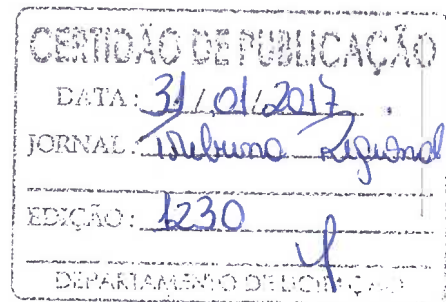 CERTIDÃO DE PUBLICAÇÃO
DATA: 31/01/2017
JORNAL: Tribuna Regional
EDIÇÃO: 1230
DEPARTAMENTO DE LICITAÇÃO